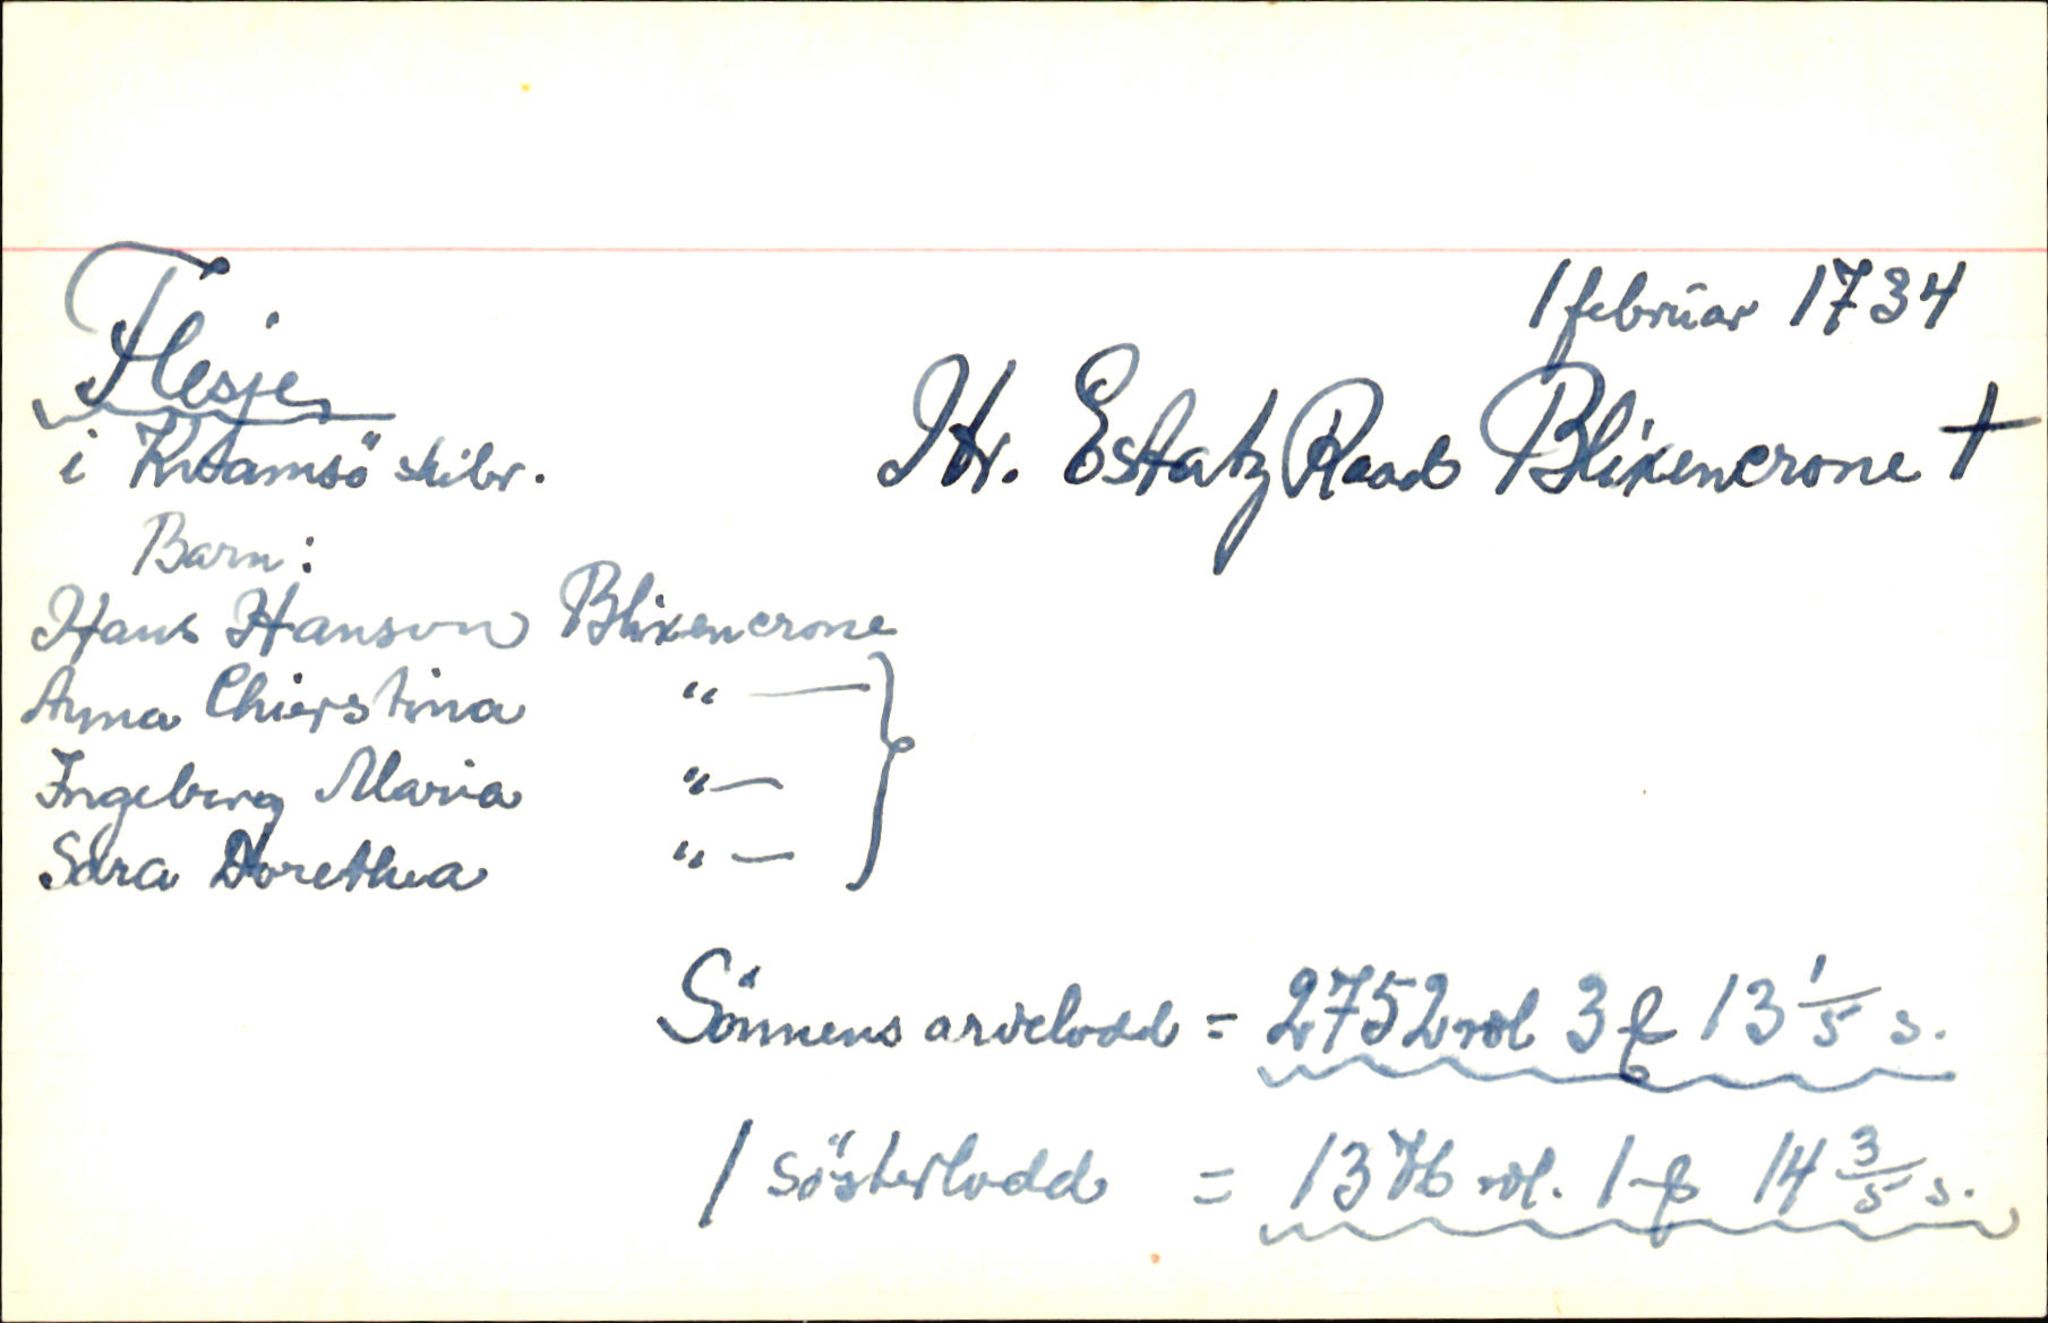 1 februar 1734
Flesje
Hr. Estatz Raad Blixencrone †
i Kvamsö skibr.
Barn:
Hans Hanson Blixencrone
Anna Chierstina " —
Ingeborg Maria " —
Sara Dorethea " —
Sönnens arvelodd = 2752 rdl 3 ƒ 13 1/5 s.
1 sösterlodd = 1376 rdl. 1 ƒ 14 3/5 s.